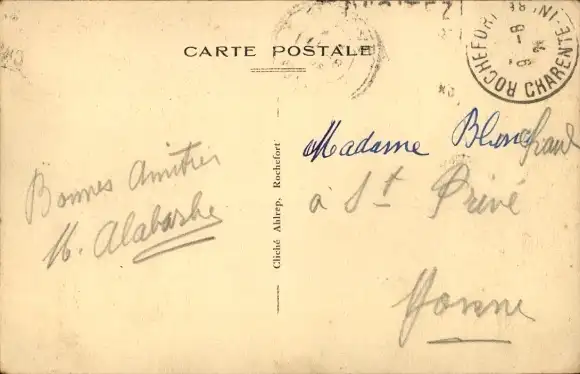 CARTE POSTALE
ROCHEFORT
CHARENTE-IN
Bonnes Amitiés
M. Alabarbe
Cliché Ahlrep, Rochefort
Madame
à St Privé
Yonne